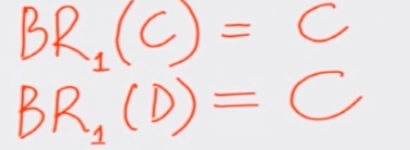 BR₁(C) = C
BR₁(D) = C